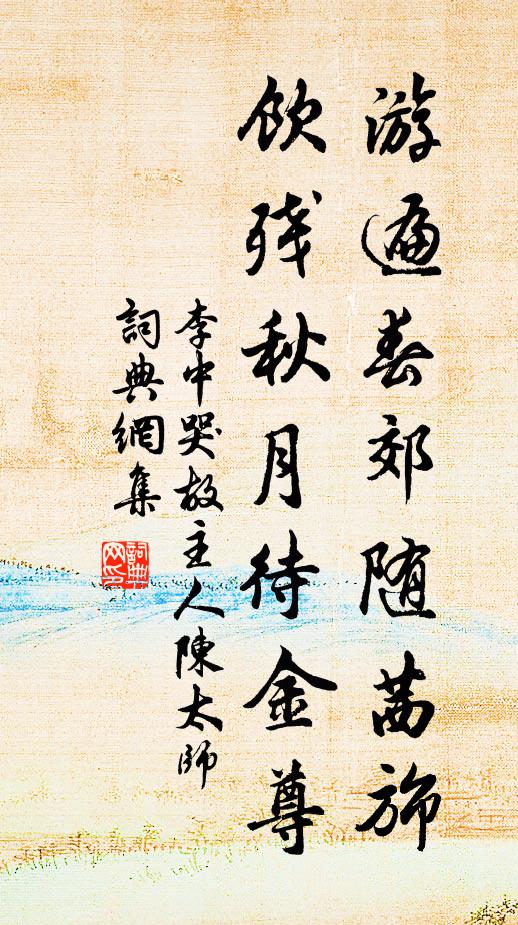 游遍春郊随茜旆
饮残秋月待金尊
李中哭故主人陳太師
詞典網集
詞典网印